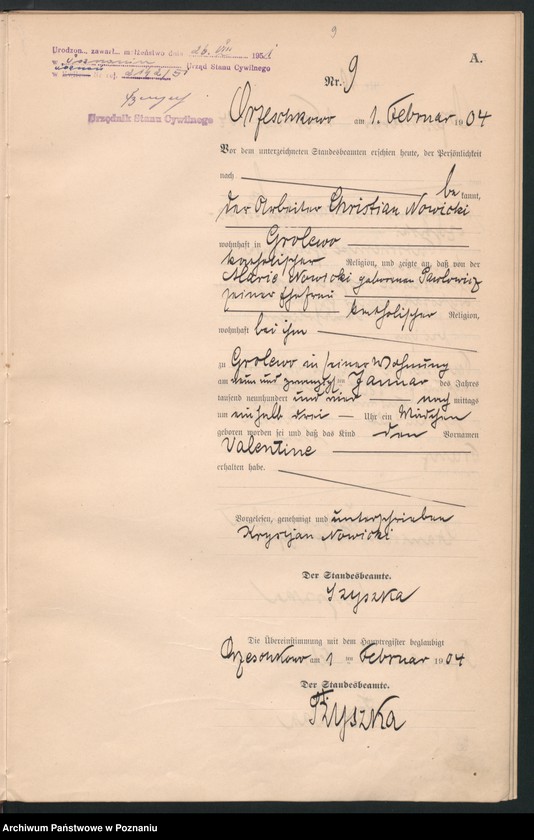 9
Urodzon... zawarł... małżeństwo dnia 26. VII 1951
w Poznaniu Urząd Stanu Cywilnego
Urzędnik Stanu Cywilnego
A.
Nr. 9
Orzeschkowo am 1. Februar 1904
Vor dem unterzeichneten Standesbeamten erschien heute, der Persönlichkeit
nach be kannt,
der Arbeiter Christian Nowicki
wohnhaft in Grolewo
katholischer Religion, und zeigte an, daß von der
Marie Nowicki geborenen Pawlowicz
seiner Ehefrau
katholischer Religion,
wohnhaft bei ihm
zu Grolewo in seiner Wohnung
am neun und zwanzigsten Januar des Jahres
tausend neunhundert und vier nach mittags
um einhalb drei Uhr ein Mädchen
geboren worden sei und daß das Kind den Vornamen
Valentine
erhalten habe.
Vorgelesen, genehmigt und unterschrieben
Krystjan Nowicki
Der Standesbeamte.
Szyszka
Die Übereinstimmung mit dem Hauptregister beglaubigt
Orzeschkowo am 1 ten Februar 1904
Der Standesbeamte.
Szyszka
Archiwum Państwowe w Poznaniu